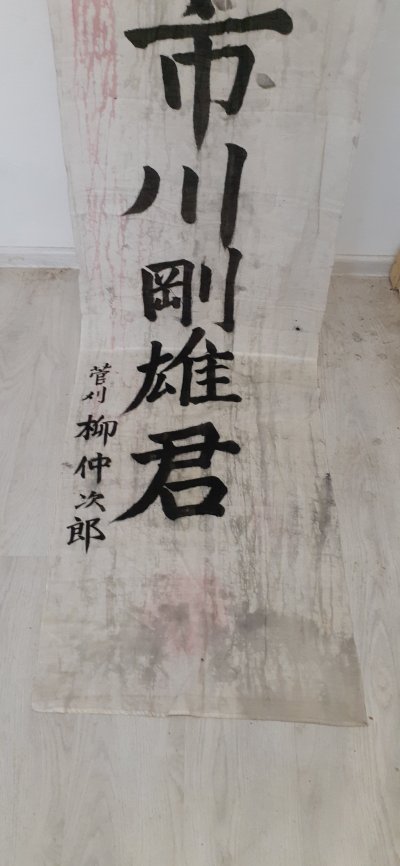 市川剛雄君
菅刈 柳仲次郎